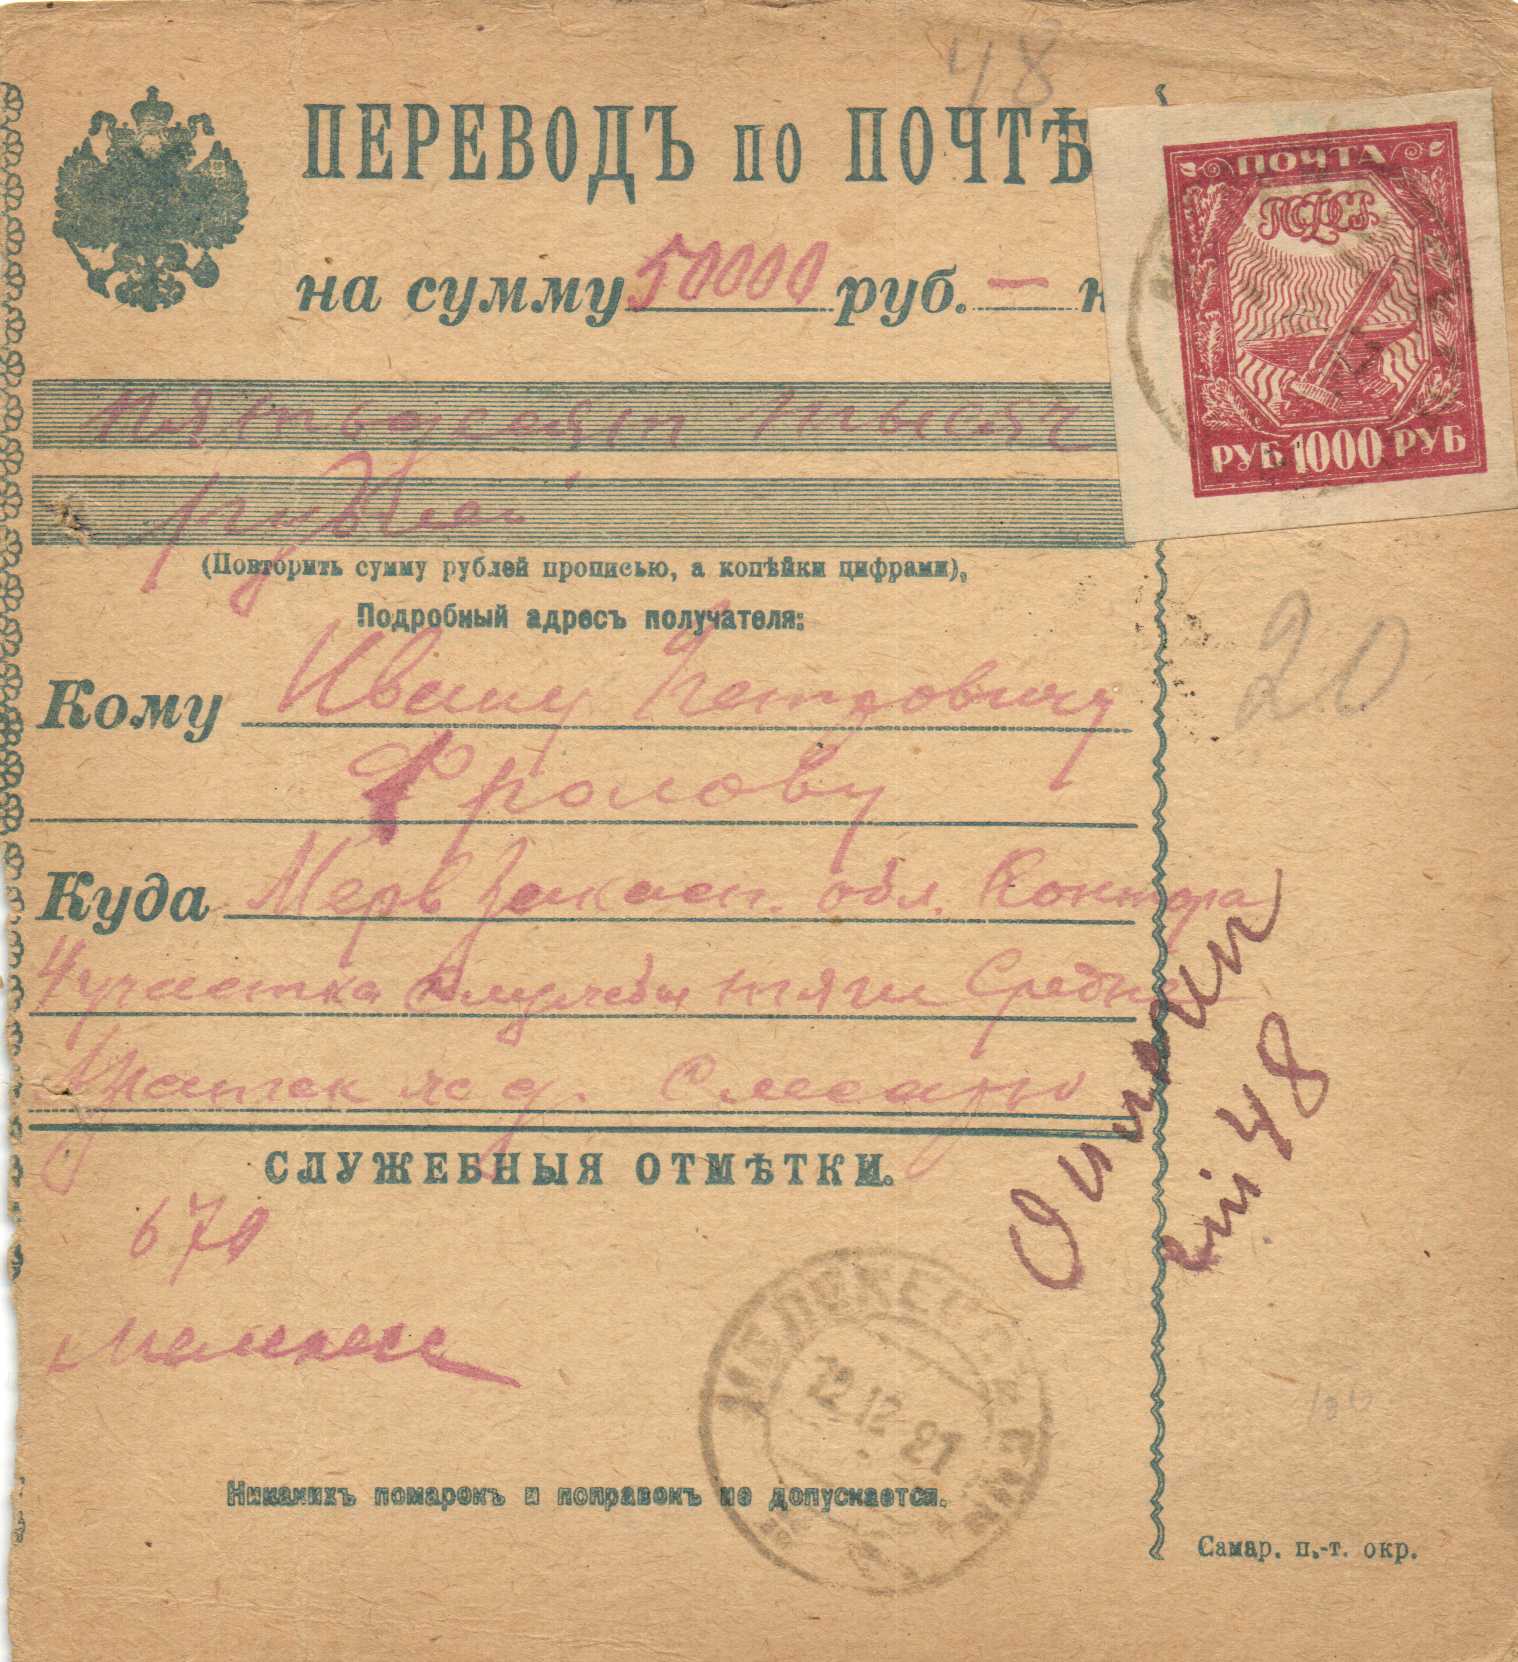 48
ПЕРЕВОДЪ по ПОЧТѢ
на сумму 50000 руб. — к
пятьдесят тысяч
рублей
(Повторить сумму рублей прописью, а копѣйки цифрами),
Подробный адресъ получателя:
Кому Ивану Петровичу
Фролову
Куда Мерв Закасп. обл. Контора
4 участка службы тяги Средне
Азиатск жд.
СЛУЖЕБНЫЯ ОТМѢТКИ.
670
Мелекесс
МЕЛЕКЕС
12 12 21
Никакихъ помарокъ и поправокъ не допускается.
ПОЧТА
РСФСР
РУБ 1000 РУБ
20
48
Самар. п.-т. окр.